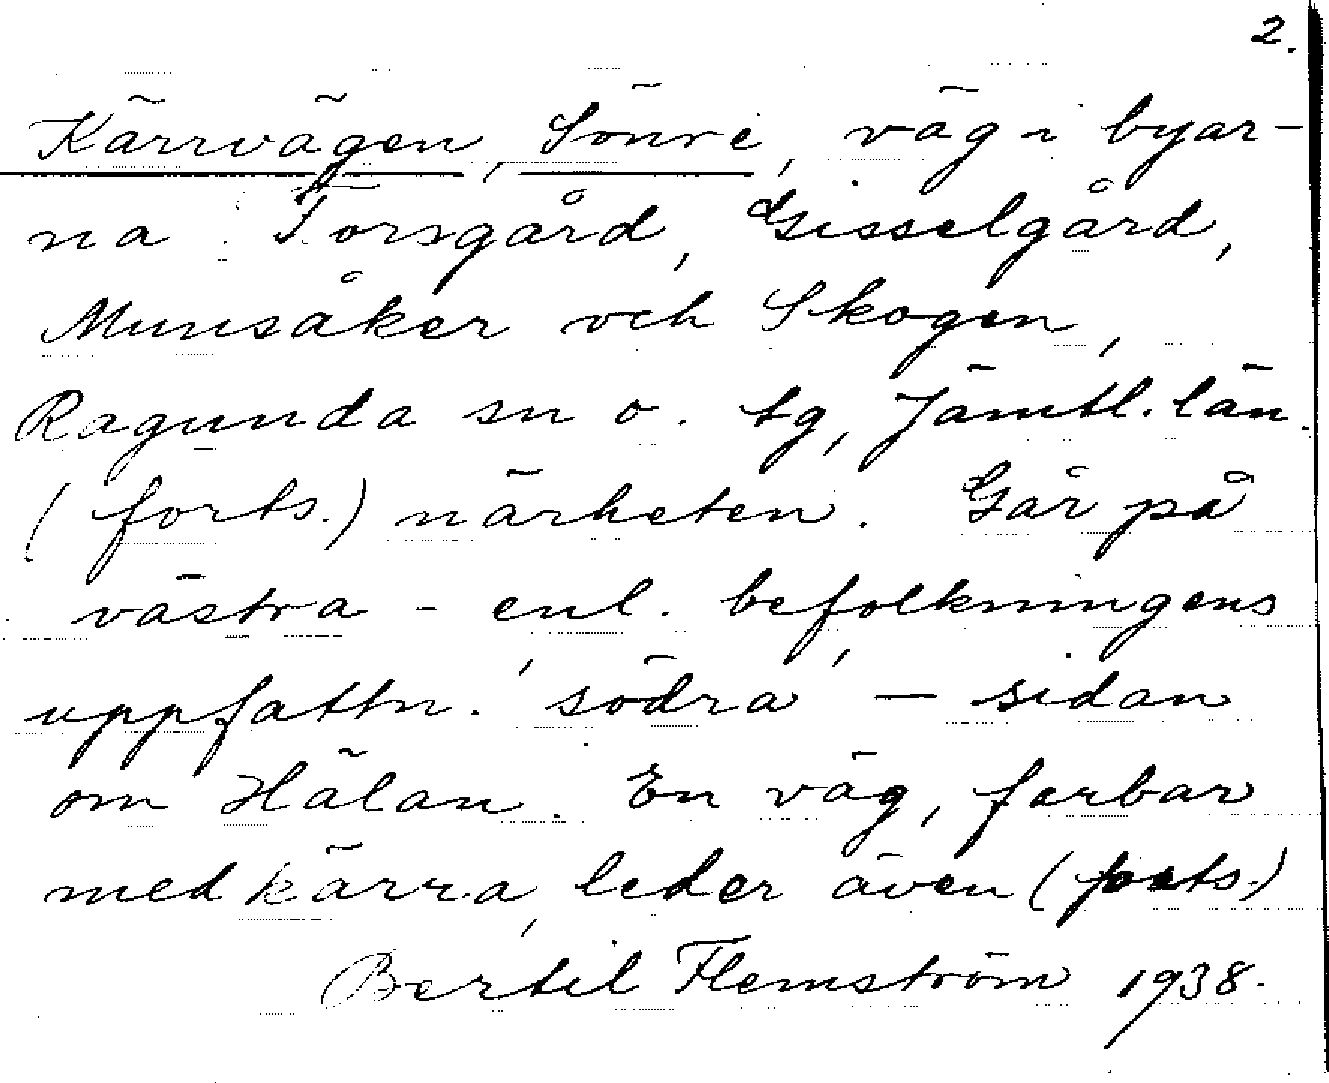 2.
Kärrvägen, Sönre, väg i byar-
na Torsgård, Gisselgård,
Munsåker och Skogen,
Ragunda sn o. tg, Jämtl. län.
(forts.) närheten. Går på
västra - enl. befolkningens
uppfattn. 'södra' — sidan
om Hälan. En väg, farbar
med kärra, leder även (forts.)
Bertil Flemström 1938.